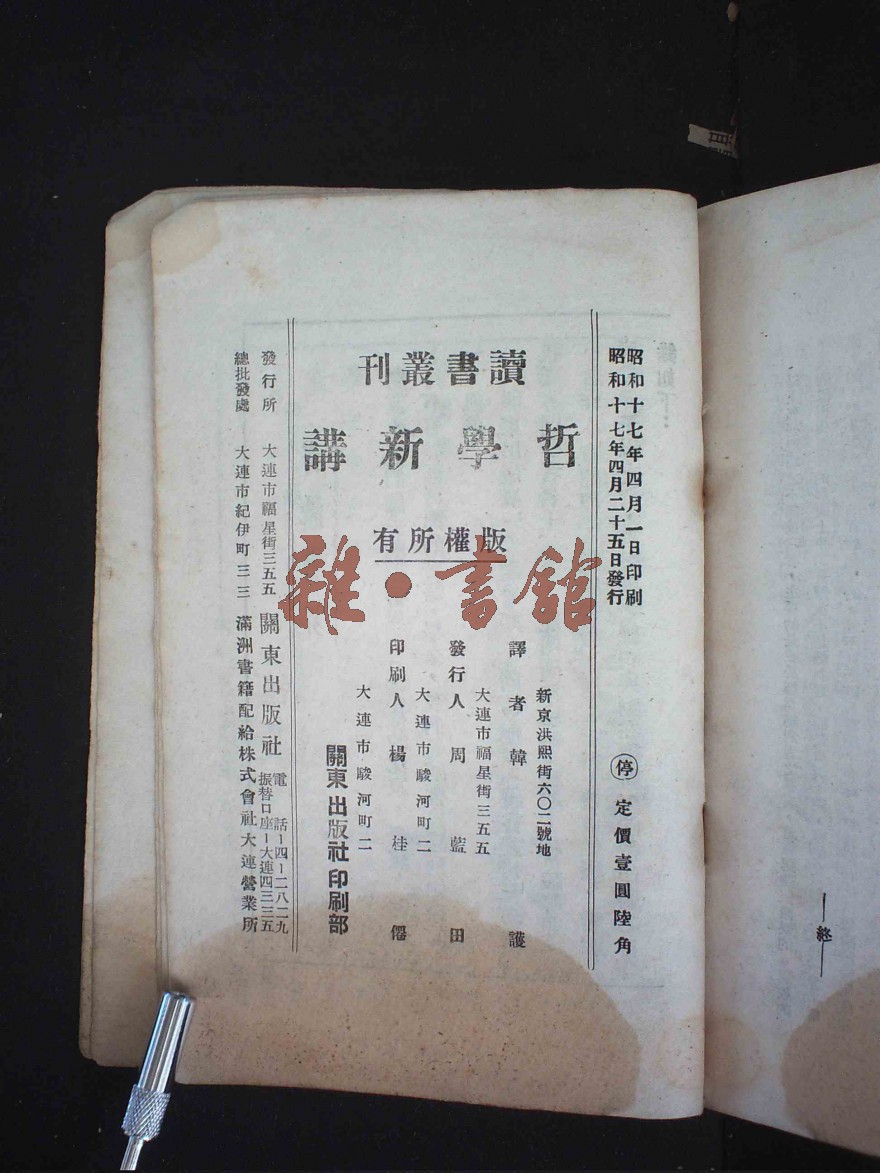 昭和十七年四月一日印刷
昭和十七年四月二十五日發行
停 定價壹圓陸角
讀書叢刊
哲學新講
版權所有
新京洪熙街六〇二號地
譯者 韓護
大連市福星街三五五
發行人 周藍田
大連市駿河町二
印刷人 楊桂僊
大連市駿河町二
關東出版社印刷部
發行所 大連市福星街三五五 關東出版社 電話—四—二八二九
振替口座—大連四三三五
總批發處 大連市紀伊町三三 滿洲書籍配給株式會社大連營業所
—終—
雜·書館